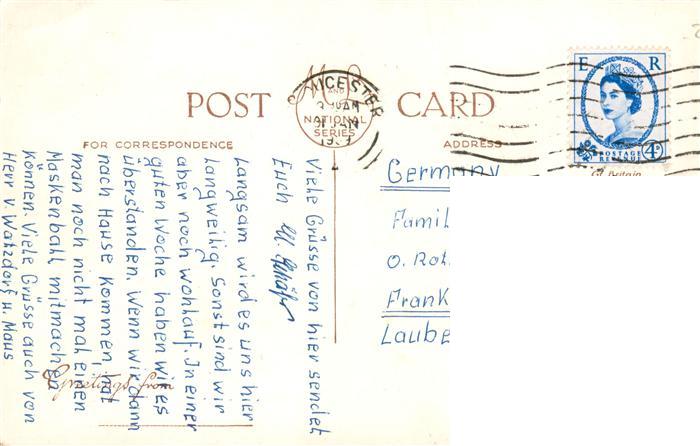 POST CARD
M and L
NATIONAL
SERIES
FOR CORRESPONDENCE
ADDRESS
Greetings from
E R
POSTAGE
REVENUE
4D
ICESTER
JAN
Viele Grüsse von hier sendet
Euch
Langsam wird es uns hier
langweilig. Sonst sind wir
aber noch wohlauf. In einer
guten Woche haben wir es
überstanden. Wenn wir dann
nach Hause kommen, hat
man noch nicht mal einen
Maskenball mitmachen
können. Viele Grüsse auch von
Herr v. Watzdorf u. Maus
Germany
Famil
O. Rot
Frank
Laube